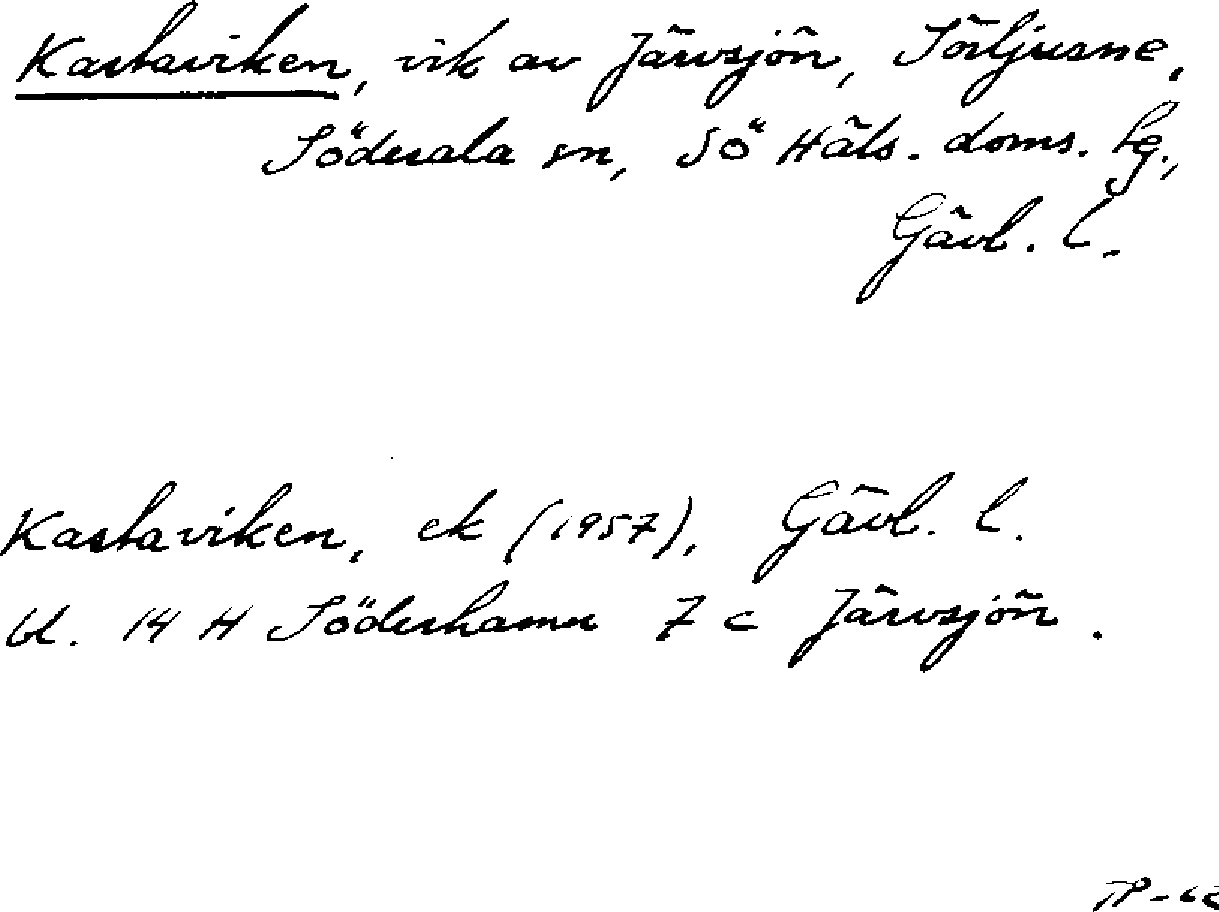 Karlaviken, vik av Järvsjön, Sörljusne,
Söderala sn, Sö Häls. doms. fg.,
Gävl. l.
Karlaviken, ek (1957), Gävl. l.
bl. 14 H Söderhamn 7 c Järvsjön.